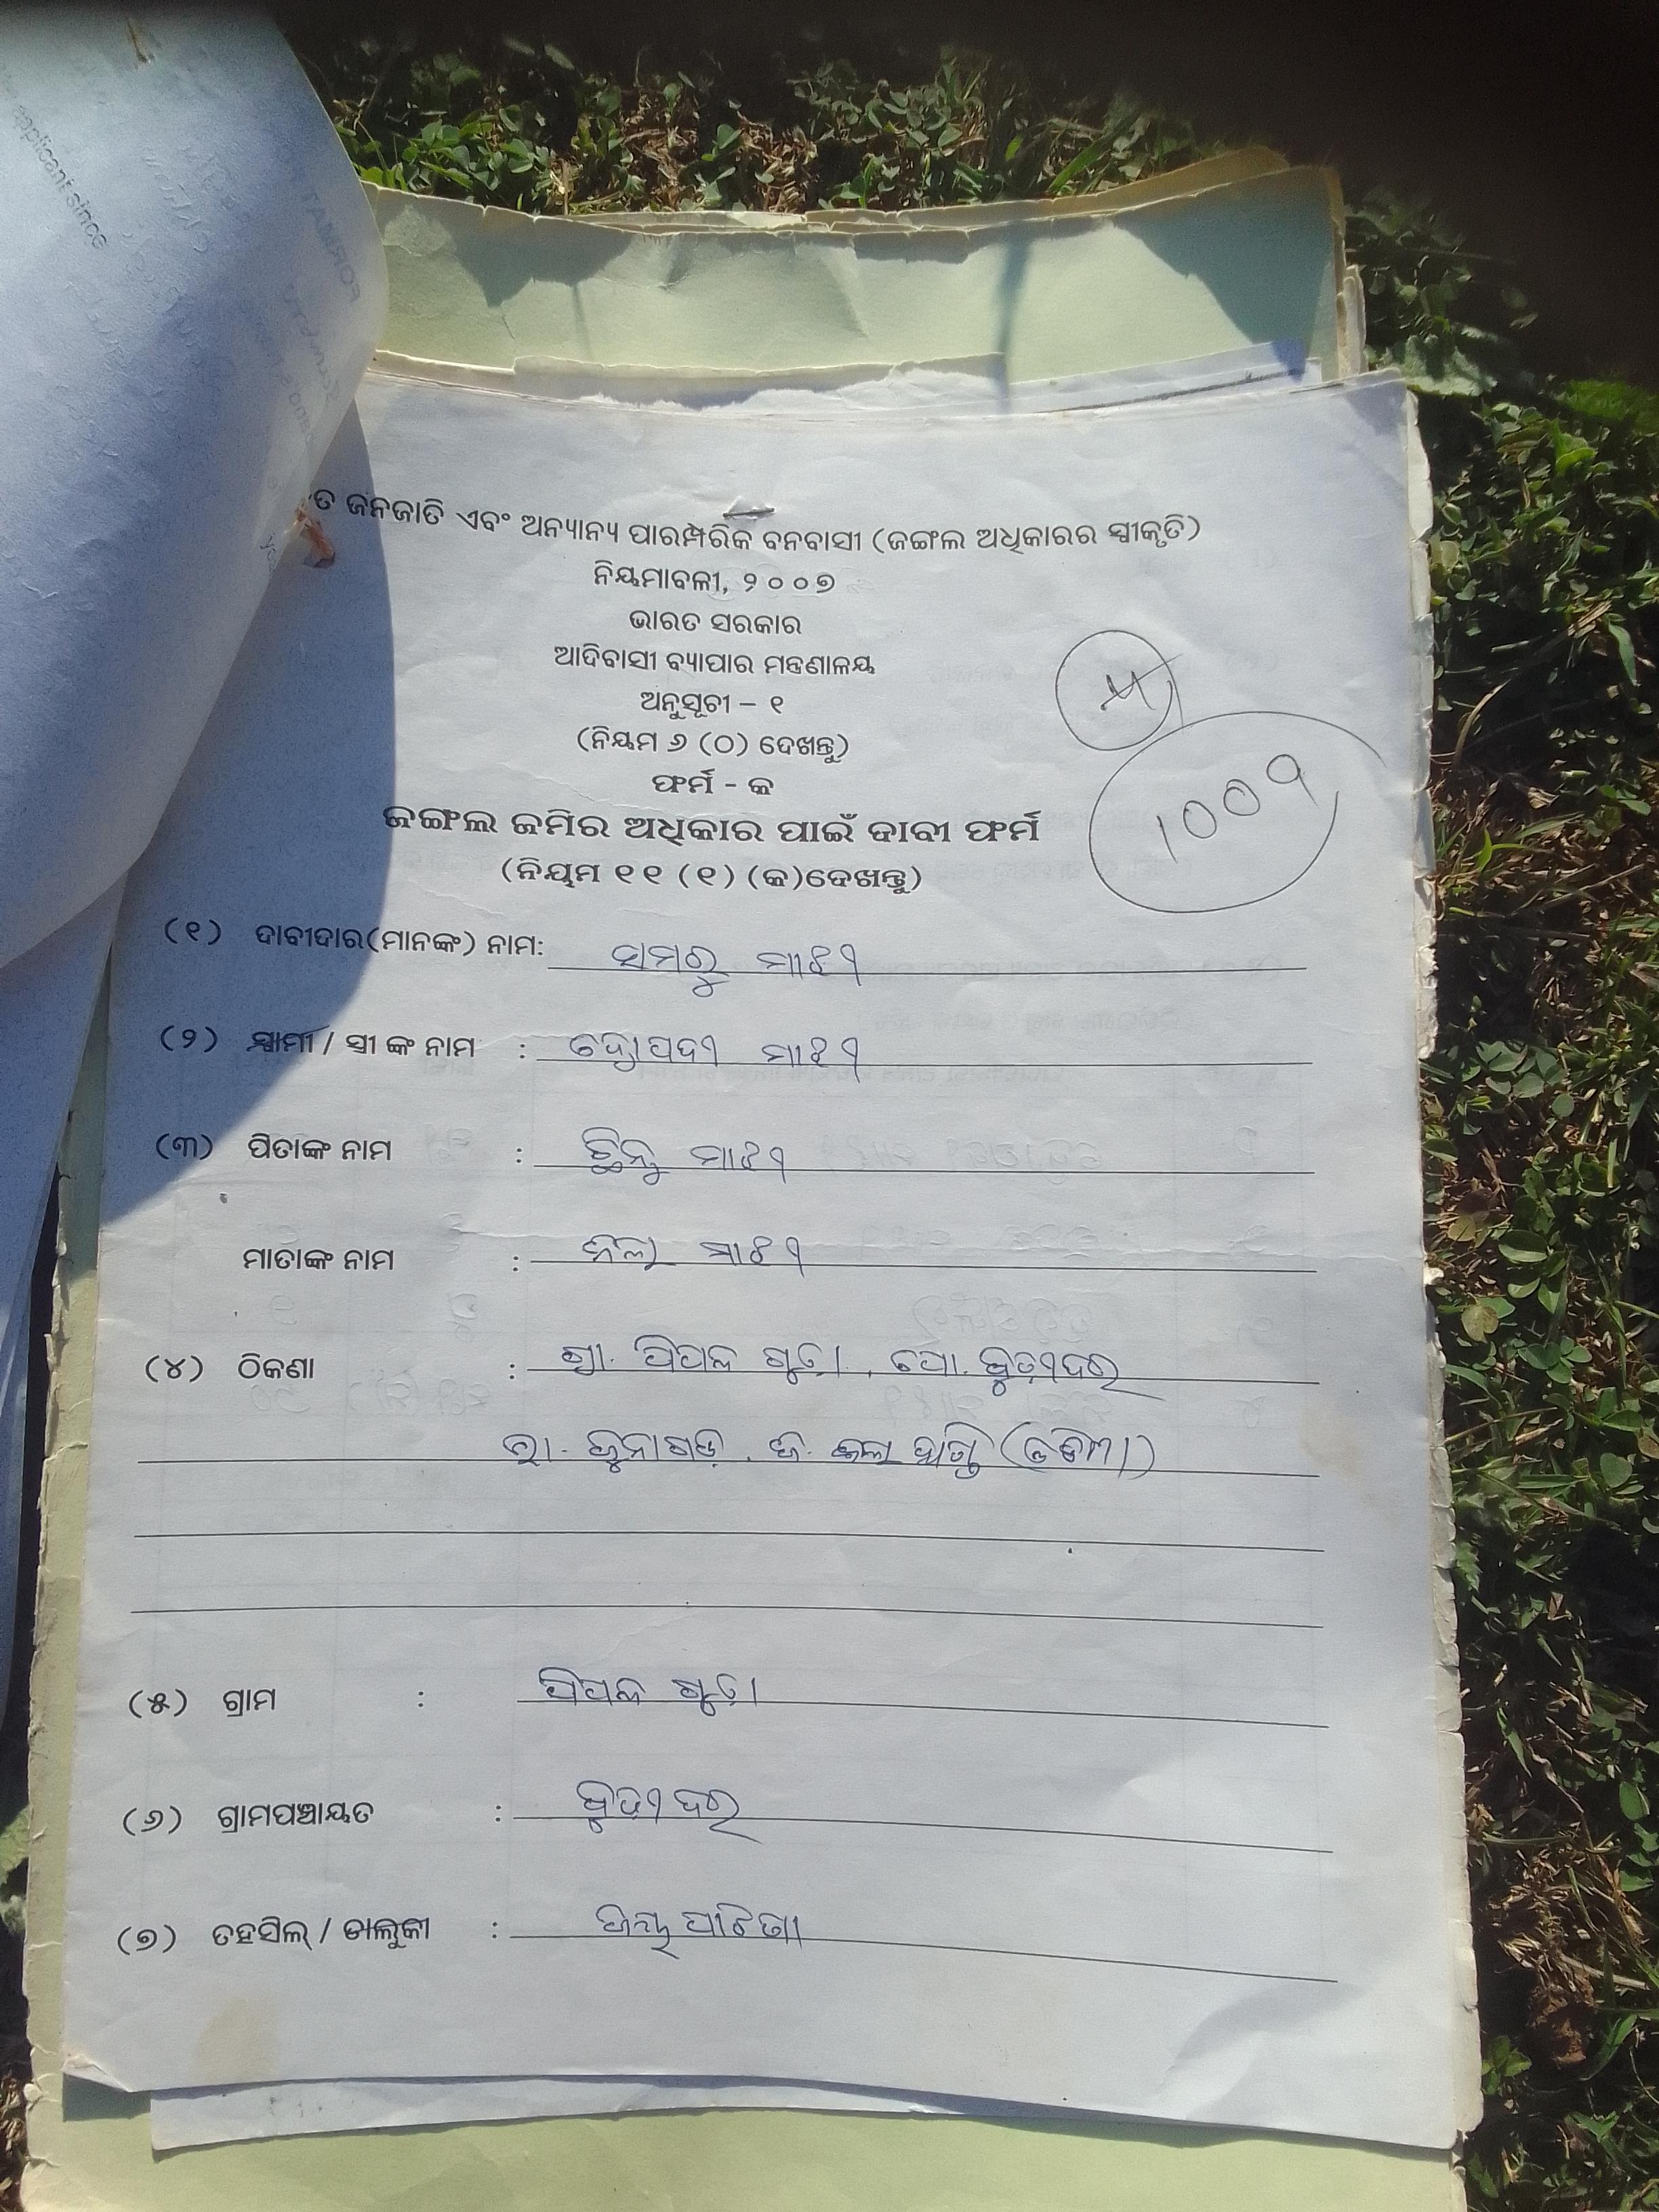 ତ ଜନଜାତି ଏବଂ ଅନ୍ୟାନ୍ୟ ପାରମ୍ପରିକ ବନବାସୀ (ଜଙ୍ଗଲ ଅଧିକାରର ସ୍ୱୀକୃତି)
ନିୟମାବଳୀ, ୨୦୦୭
ଭାରତ ସରକାର
ଆଦିବାସୀ ବ୍ୟାପାର ମନ୍ତ୍ରଣାଳୟ
ଅନୁସୂଚୀ – ୧
(ନିୟମ ୬ (ଠ) ଦେଖନ୍ତୁ)
ଫର୍ମ - କ
ଜଙ୍ଗଲ ଜମିର ଅଧିକାର ପାଇଁ ଦାବୀ ଫର୍ମ
(ନିୟମ ୧୧ (୧) (କ)ଦେଖନ୍ତୁ)
M
1009
(୧) ଦାବୀଦାର(ମାନଙ୍କ) ନାମ: ସମରୁ ମାଝୀ
(୨) ସ୍ୱାମୀ / ସ୍ତ୍ରୀ ଙ୍କ ନାମ : ଦ୍ରୋପଦୀ ମାଝୀ
(୩) ପିତାଙ୍କ ନାମ : ମାଝୀ
ମାତାଙ୍କ ନାମ : ମାଝୀ
(୪) ଠିକଣା : ଗ୍ରା. ପିପଳ ଗୁଡ଼ା, ପୋ. ବୁଢ଼ୀଦର
ଜୁନାଗଡ଼, ଜି. କଳାହାଣ୍ଡି (ଓଡିଶା)
(୫) ଗ୍ରାମ : ପିପଳ ଗୁଡ଼ା
(୬) ଗ୍ରାମପଞ୍ଚାୟତ : ବୁଢ଼ୀଦର
(୭) ତହସିଲ୍ / ତାଲୁକା : ଜୟପାଟଣା
applicant since
FORMAT